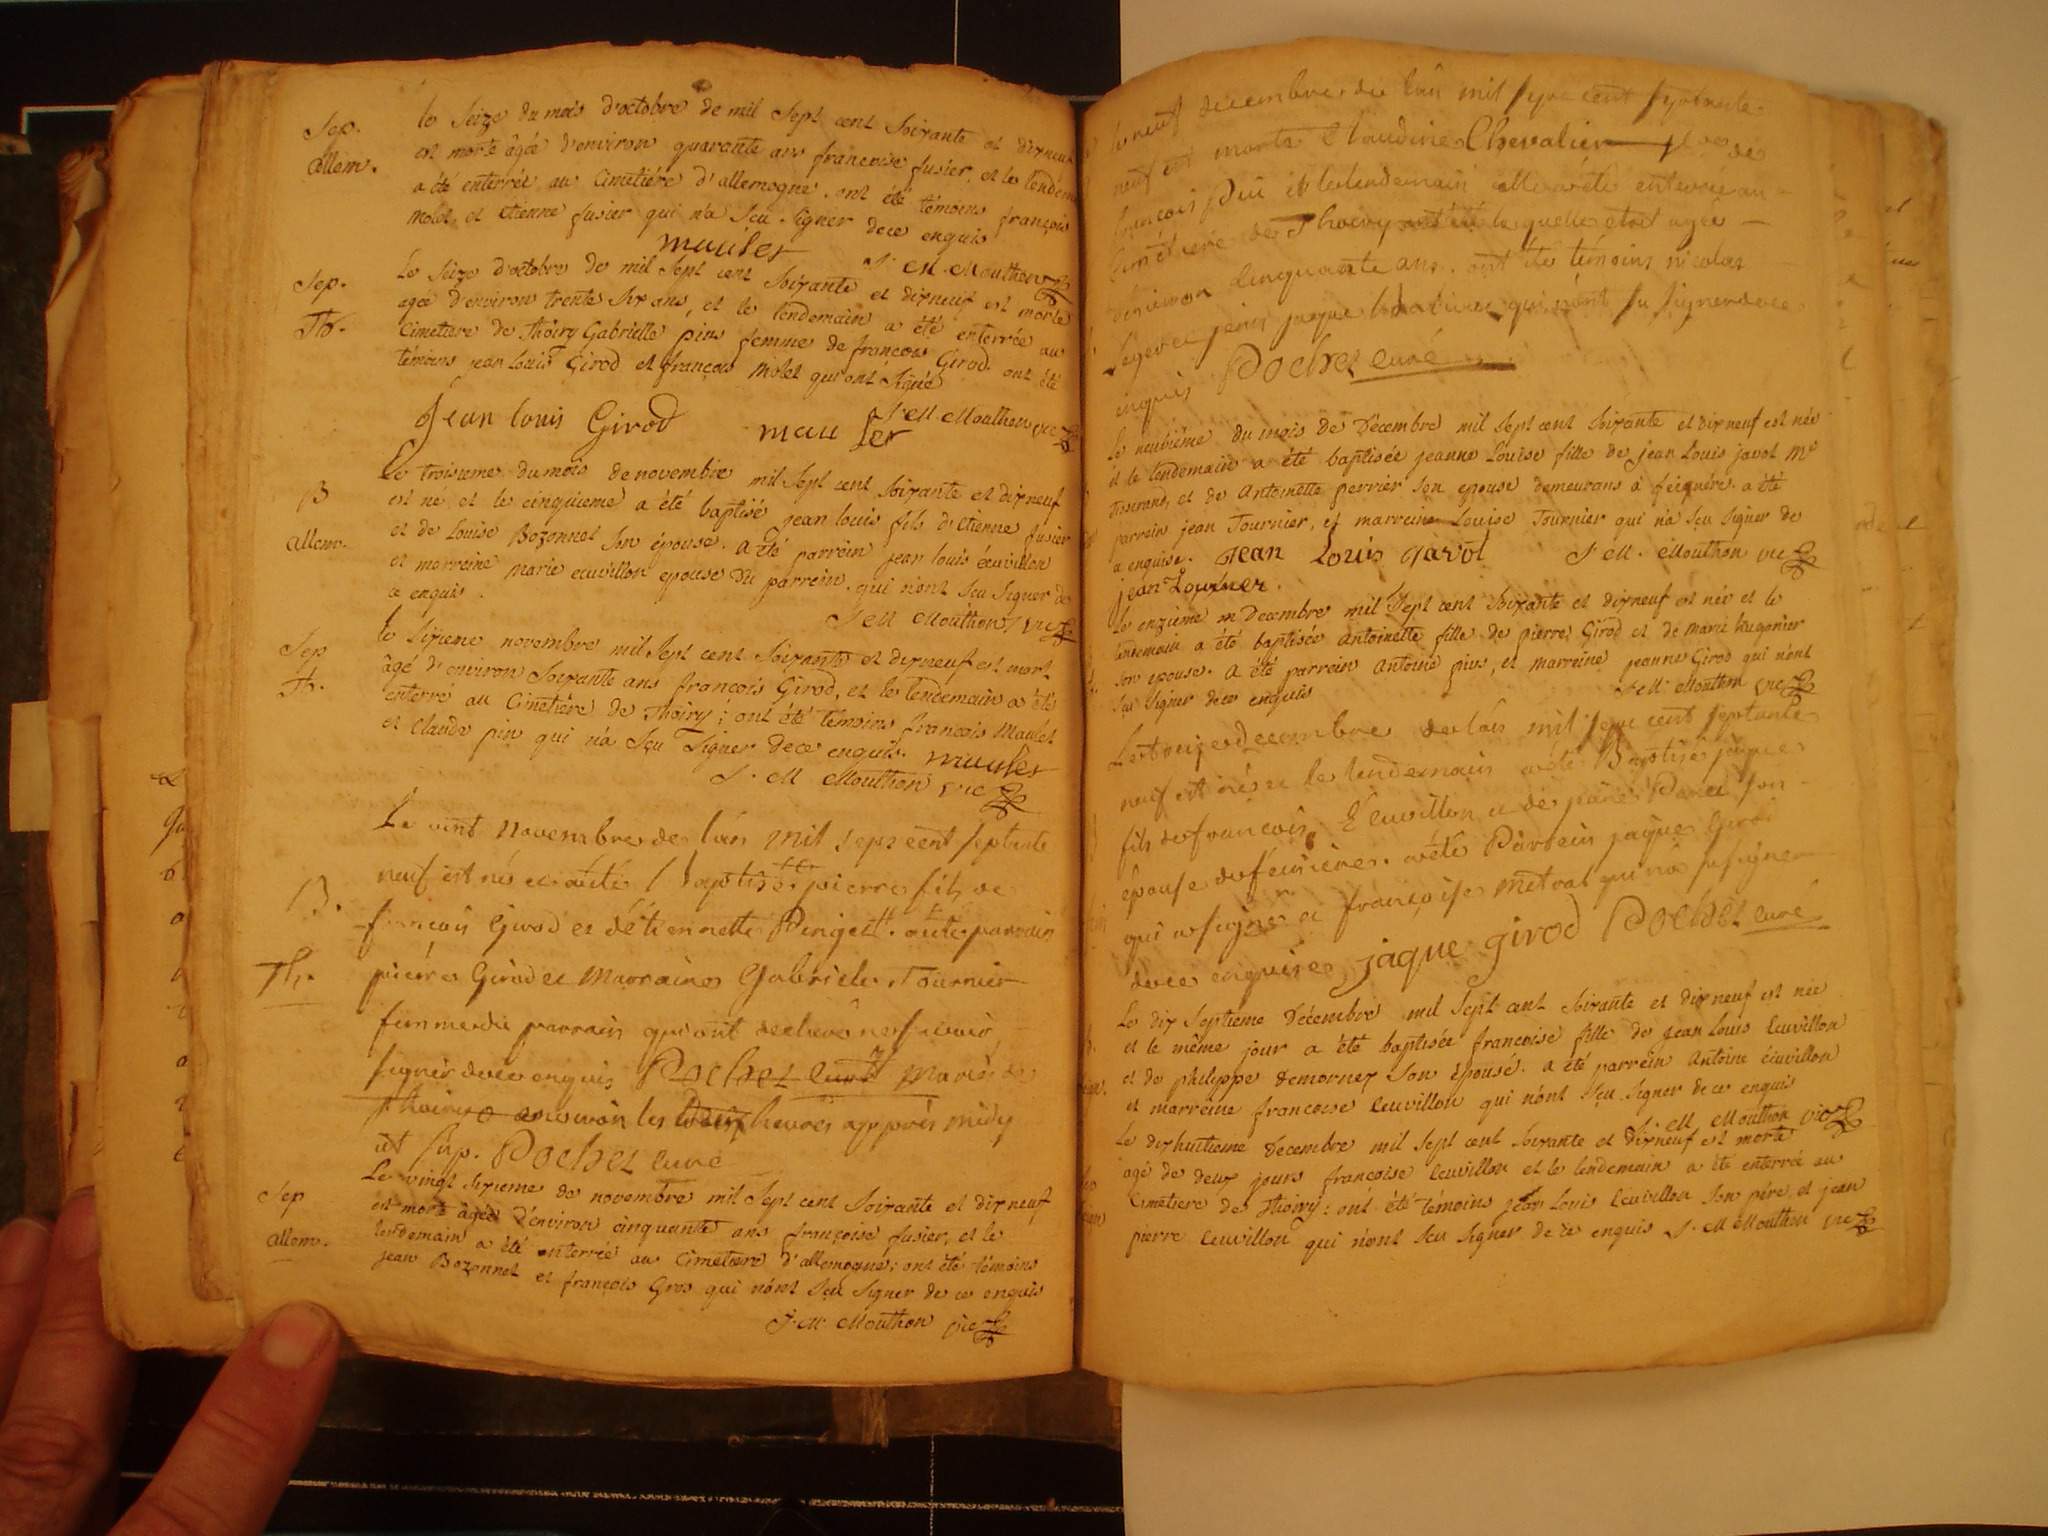 Sep.
allem.
le seize du mois d'octobre de mil sept cent soixante et dixneuf
est morte âgée d'environ quarante ans francoise fusier, et le lendemain
a été enterrée au cimetiére d'allemogne. ont été témoins françois
molet et etienne fusier qui n'a sçu signer de ce enquis
maulet
J. M. Mouthon vic
Sep.
Th.
Le seize d'octobre de mil sept cent soixante et dixneuf est morte
agée d'environ trente six ans, et le lendemain a été enterrée au
cimetiere de Thoiry Gabrielle pin femme de francois Girod. ont été
témoins jean Louis Girod et françois Molet qui ont signé
J. M. Mouthon vic
Jean louis Girod maulet
B
allem.
Le troisieme du mois de novembre mil sept cent soixante et dixneuf
est né et le cinquieme a été baptisé jean louis fils d'etienne fusier
et de Louise Bozonnet son épouse. a été parrein jean louis écuvillon
et marreine marie ecuvillon epouse du parrein. qui n'ont sçu signer de
ce enquis.
J M Mouthon vic
Sep
Th.
le sixieme novembre mil sept cent soixante et dixneuf est mort
âgé d'environ soixante ans françois Girod, et le lendemain a été
enterré au cimetiére de Thoiry; ont été témoins francois Maulet
et Claude pin qui n'a sçu signer de ce enquis. maulet
J. M Mouthon vic
B.
Th.
Le vint novembre de l'an mil sept cent septante
neuf est né et a été baptisé pierre fils de
francois Girod et d'étiennette Pinget. a été parrain
pierre Girod et marraine Gabriele Tournier
femme du parrain qui ont declaré ne scavoir
signer de ce enquis Pochet curé
heures apprés midy
ut sup. Pochet curé
Sep
allem.
Le vingt sixieme de novembre mil sept cent soixante et dixneuf
est morte âgée d'environ cinquante ans françoise fusier, et le
lendemain a été enterrée au cimetiere d'allemogne; ont été témoins
jean Bozonnet et françois Gros qui n'ont sçu signer de ce enquis
J. M. Mouthon vic
le neuf decembre de l'an mil sept cent septante
neuf est morte Claudine Chevalier de
francois et le lendemain elle a été enterrée au
cimétiere de Thoiry la quelle etoit agée
denviron cinquante ans. ont été témoins nicolas
jaque qui n'ont su signer de ce
enquis Pochet curé
Le neuviéme du mois de Décembre mil sept cent soixante et dixneuf est née
et le lendemain a été baptisée jeanne Louise fille de jean Louis javot Me
Tisserand, et de Antoinette perrier son epouse demeurans à feignére. a été
parrein jean Tournier, et marreine Louise Tournier qui n'a sçu signer de
ce enquise. Jean Louis Javot J. M. Mouthon vic
jean Tournier.
Le onzieme Decembre mil sept cent soixante et dixneuf est née et le
lendemain a été baptisée antoinette fille de pierre Girod et de Marie hugonier
son epouse. a été parrein antoine pins, et marreine jeanne Girod qui n'ont
sçu signer de ce enquis J. M. Mouthon vic
Le treize decembre de l'an mil sept cent septante
neuf est né et le lendemain a été Baptisé jaque
fils de francois Ecuvillon et de son
epouse de feuiere. a été Parrein jaque Girod
qui a signé et françoise Metral qui n'a su signer
de ce enquise jaque girod Pochet curé
Le dix septieme Décembre mil sept cent soixante et dixneuf est née
et le même jour a été baptisée francoise fille de jean Louis Ecuvillon
et de philippe demornex son épouse. a été parrein Antoine écuvillon
et marreine francoise Ecuvillon qui n'ont sçu signer de ce enquis
J. M Mouthon vic
Le dixhuitieme Decembre mil sept cent soixante et dixneuf est morte
agé de deux jours francoise Ecuvillon et le lendemain a été enterrée au
cimetiere de Thoiry: ont été témoins jean Louis Ecuvillon son pére et jean
pierre Ecuvillon qui n'ont sçu signer de ce enquis J. M Mouthon vic